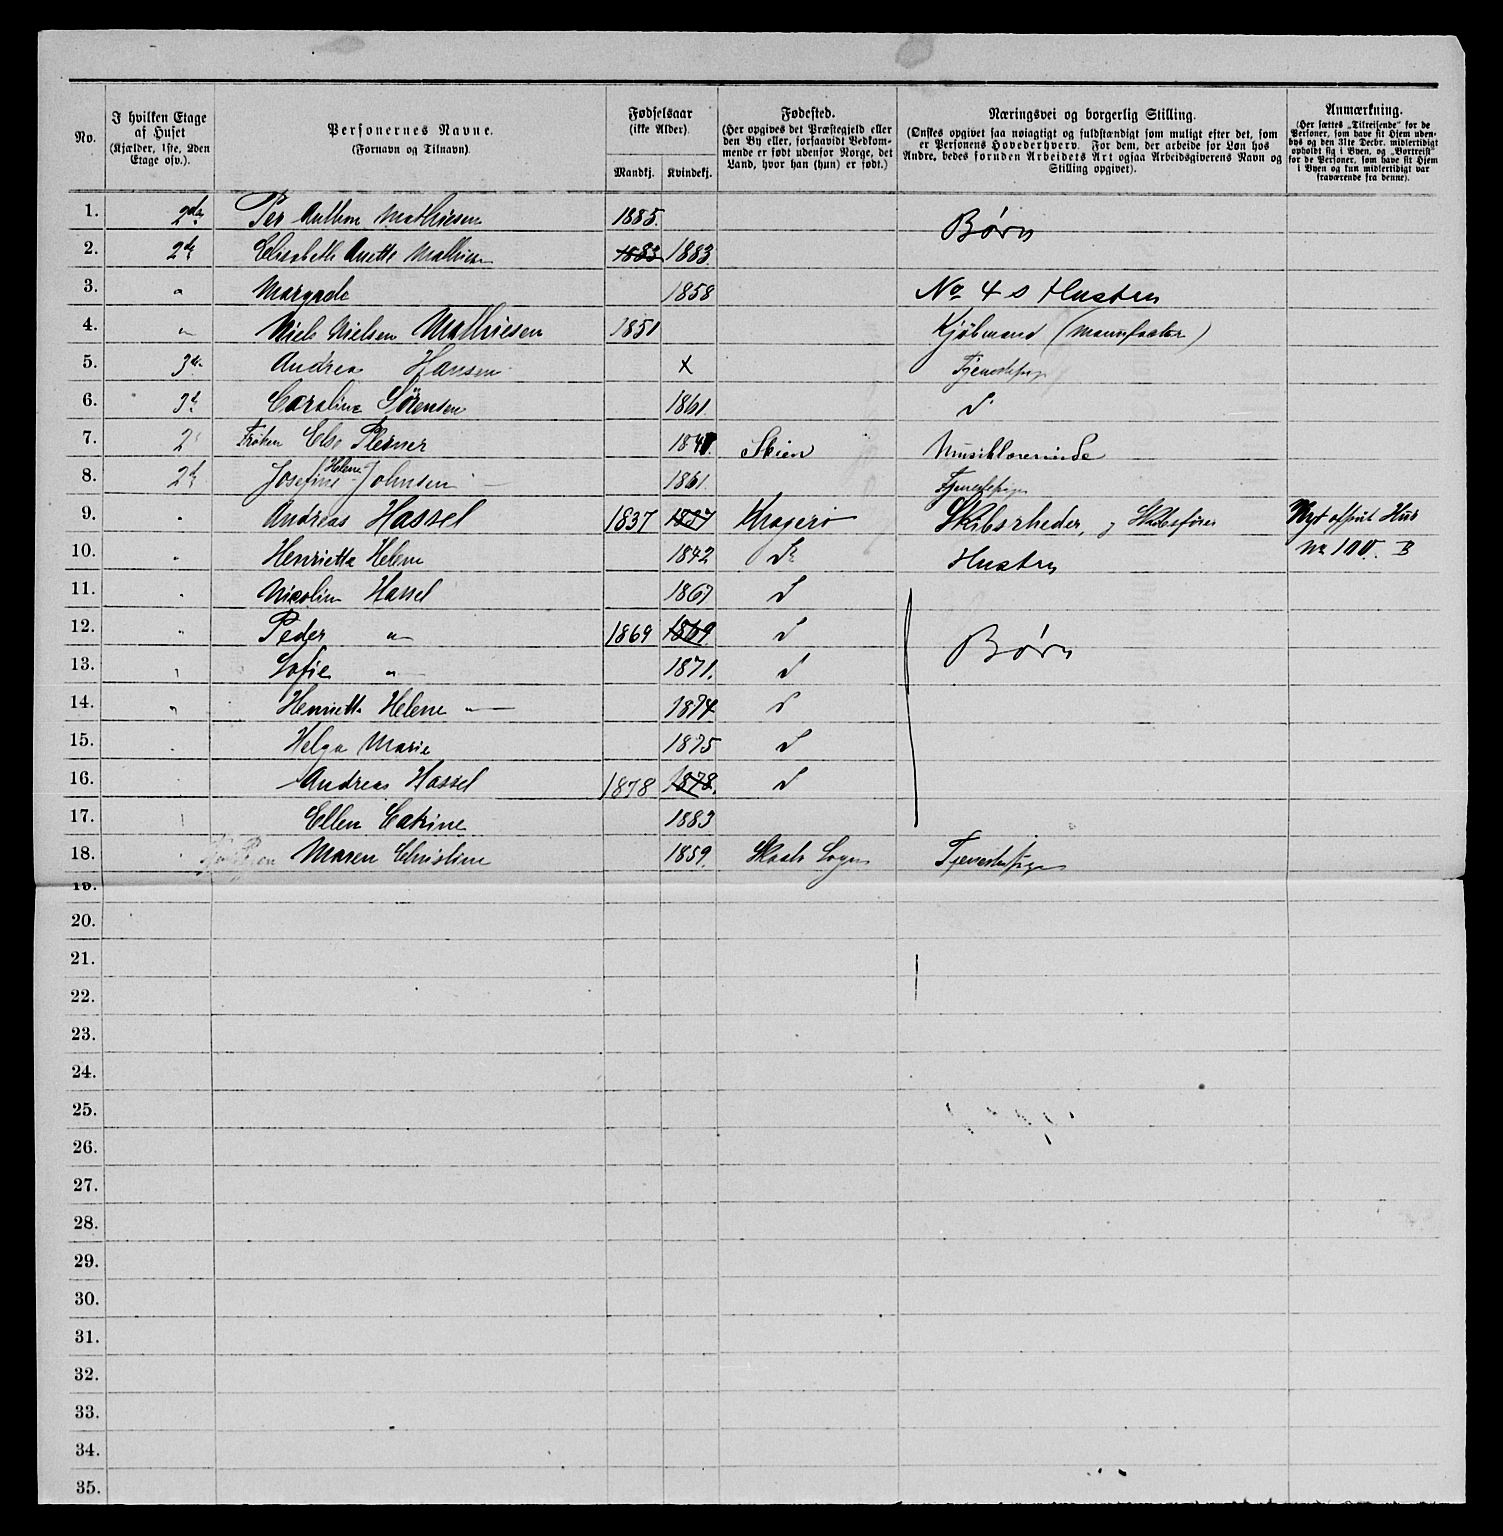 No.
I hvilken Etage
af Huset
(Kjælder, 1ste, 2den
Etage osv.).
Personernes Navne.
(Fornavn og Tilnavn).
Fødselsaar
(ikke Alder).
Mandkj. Kvindekj.
Fødested.
(Her opgives det Præstegjeld eller
den By eller, forsaavidt Vedkom-
mende er født udenfor Norge, det
Land, hvor han (hun) er født.)
Næringsvei og borgerlig Stilling.
(Ønskes opgivet saa nøiagtigt og fuldstændigt som muligt efter det, som
er Personens Hovederhverv. For dem, der arbeide for Løn hos
Andre, bedes foruden Arbeidets Art ogsaa Arbeidsgiverens Navn og
Stilling opgivet).
Anmærkning.
(Her sættes „Tilreisende" for de
Personer, som have sit Hjem uden-
bys og den 31te Decbr. midlertidigt
opholdt sig i Byen, og „Bortreist"
for de Personer, som have sit Hjem
i Byen og kun midlertidigt var
fraværende fra denne).
1. 2den Per Anthon Mathiesen 1885. Børn
2. 2d Elisabeth Anette Mathiesen 1883 1883.
3. " Margrede 1858 No 4 s Hustru
4. " Niels Nielsen Mathiesen 1851 Kjøbmand (Manufactur)
5. 3de Andrea Hansen x Tjenestepige
6. 3d Caroline Sørensen 1861 d
7. 2 Frøken Else Plesner Skien Musiklærerinde
8. 2d Josefine Helene Johnsen 1861. Tjenestepige
9. " Andreas Hassel 1837 1837 Kragerø Skibsrheder, og Skibsfører Nyt opført Hus
10. " Henriette Helene 1842 Do Hustru No 100. B
11. " Nicoline Hassel 1867 d
12. " Peder " 1869 1869. d Børn
13. " Sofie " 1871. d
14. " Henriette Helene " 1874 d
15. " Helga Marie 1875 d
16. Andreas Hassel 1878 1878. d
17. " Ellen Catrine 1883
18. " Maren Christine 1859. Skaatø Sogn Tjenestepige
19.
20.
21.
22.
23.
24.
25.
26.
27.
28.
29.
30.
31.
32.
33.
34.
35.